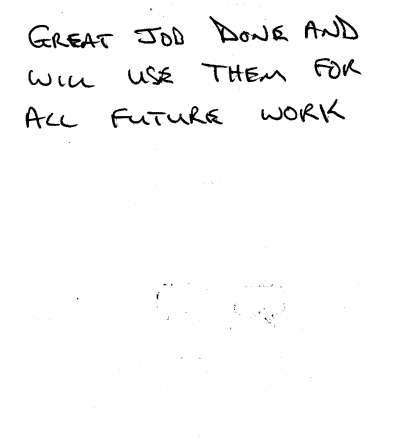 GREAT JOB DONE AND
WILL USE THEM FOR
ALL FUTURE WORK